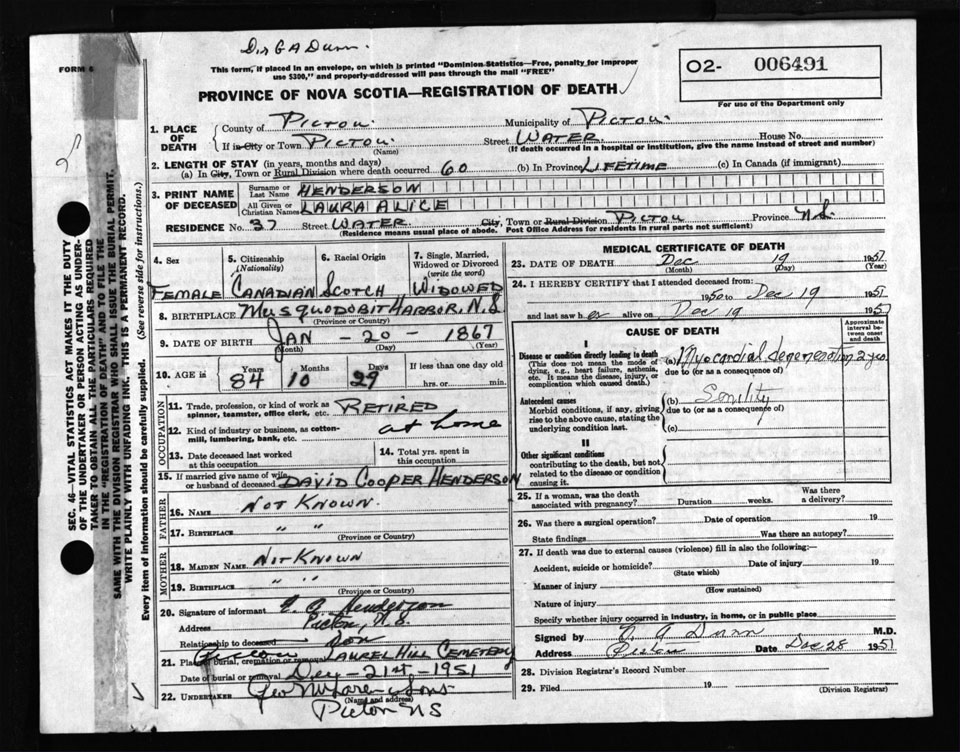 Drs G A Dunn.
FORM 6
This form, if placed in an envelope, on which is printed "Dominion Statistics—Free, penalty for improper
use $300," and properly addressed will pass through the mail "FREE"
O2- 006491
For use of the Department only
PROVINCE OF NOVA SCOTIA—REGISTRATION OF DEATH
1. PLACE OF DEATH
County of PICTOU. Municipality of PICTOU.
If in City or Town PICTOU. (Name) Street WATER House No.
(If death occurred in a hospital or institution, give the name instead of street and number)
2. LENGTH OF STAY (in years, months and days)
(a) In City, Town or Rural Division where death occurred 60 (b) In Province LIFETIME (c) In Canada (if immigrant)
3. PRINT NAME OF DECEASED
Surname or Last Name HENDERSON
All Given or Christian Names LAURA ALICE
RESIDENCE No. 37 Street WATER City, Town or Rural Division PICTOU Province N.S.
(Residence means usual place of abode. Post Office Address for residents in rural parts not sufficient)
4. Sex
FEMALE
5. Citizenship (Nationality)
CANADIAN
6. Racial Origin
SCOTCH
7. Single, Married, Widowed or Divorced (write the word)
WIDOWED
8. BIRTHPLACE MUSQUODOBIT HARBOR, N.S
(Province or Country)
9. DATE OF BIRTH JAN - 20 - 1867
(Month) (Day) (Year)
10. AGE IS Years 84 Months 10 Days 29 If less than one day old hrs. or min.
OCCUPATION
11. Trade, profession, or kind of work as spinner, teamster, office clerk, etc. RETIRED
12. Kind of industry or business, as cotton-mill, lumbering, bank, etc. at home
13. Date deceased last worked at this occupation
14. Total yrs. spent in this occupation
15. If married give name of wife or husband of deceased DAVID COOPER HENDERSON
FATHER
16. NAME NOT KNOWN.
17. BIRTHPLACE " "
(Province or Country)
MOTHER
18. MAIDEN NAME NOT KNOWN
19. BIRTHPLACE " "
(Province or Country)
20. Signature of informant Henderson
Address Pictou, N.S.
Relationship to deceased Son
21. Place of burial, cremation or removal LAUREL HILL CEMETERY
Date of burial or removal Dec - 21st 1951
22. UNDERTAKER Geo McLaren & Sons
(Name and address)
Pictou NS
MEDICAL CERTIFICATE OF DEATH
23. DATE OF DEATH Dec 19 1951
(Month) (Day) (Year)
24. I HEREBY CERTIFY that I attended deceased from:
1950 to Dec 19 1951
and last saw her alive on Dec 19 1951
CAUSE OF DEATH
Approximate interval between onset and death
I
Disease or condition directly leading to death
(This does not mean the mode of dying, e.g., heart failure, asthenia, etc. It means the disease, injury, or complication which caused death.)
(a) Myocardial degeneration 2 yrs.
due to (or as consequence of)
Antecedent causes
Morbid conditions, if any, giving rise to the above cause, stating the underlying condition last.
(b) Senility
due to (or as a consequence of)
(c)
II
Other significant conditions
contributing to the death, but not related to the disease or condition causing it.
25. If a woman, was the death associated with pregnancy? Duration weeks. Was there a delivery?
26. Was there a surgical operation? Date of operation 19
State findings Was there an autopsy?
27. If death was due to external causes (violence) fill in also the following:—
Accident, suicide or homicide? Date of injury 19
(State which)
Manner of injury
(How sustained)
Nature of injury
Specify whether injury occurred in industry, in home, or in public place
Signed by G A Dunn M.D.
Address Pictou Date Dec 28 1951
28. Division Registrar's Record Number
29. Filed 19
(Division Registrar)
SEC. 46—VITAL STATISTICS ACT MAKES IT THE DUTY
OF THE UNDERTAKER OR PERSON ACTING AS UNDER-
TAKER TO OBTAIN ALL THE PARTICULARS REQUIRED
IN THE "REGISTRATION OF DEATH" AND TO FILE THE
SAME WITH THE DIVISION REGISTRAR WHO SHALL ISSUE THE BURIAL PERMIT.
WRITE PLAINLY WITH UNFADING INK. THIS IS A PERMANENT RECORD.
Every item of information should be carefully supplied. (See reverse side for instructions.)